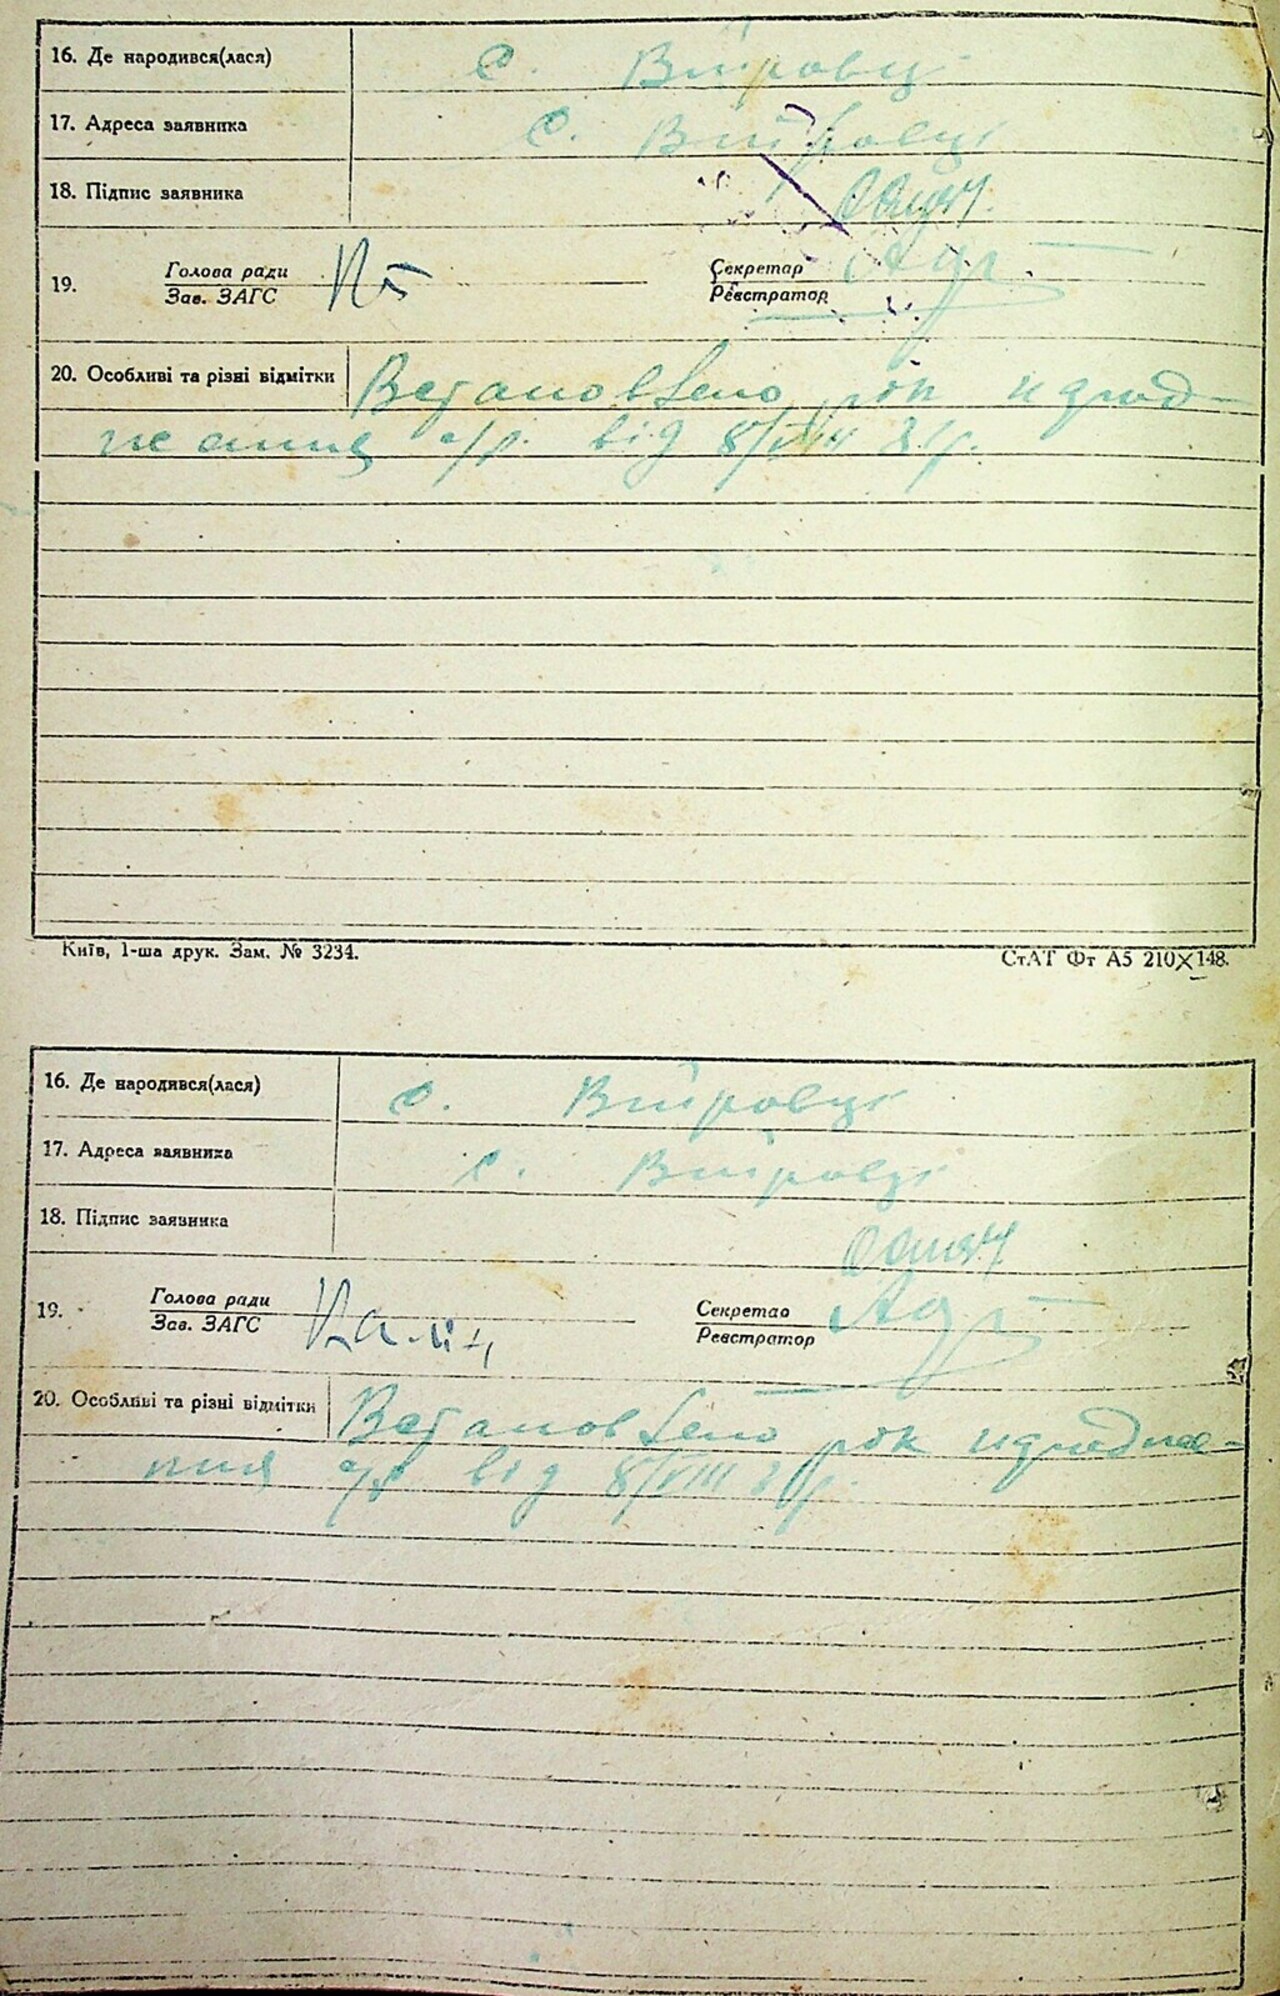 16. Де народився(лася) с. Війровці
17. Адреса заявника с. Війровці
18. Підпис заявника
19. Голова ради Секретар
Зав. ЗАГС Реєстратор
20. Особливі та різні відмітки Встановлено рік
с/р. від 8/VIII
Київ, 1-ша друк. Зам. № 3234. СтАТ Фт А5 210×148.
16. Де народився(лася) с. Війровці
17. Адреса заявника с. Війровці
18. Підпис заявника
19. Голова ради Секретар
Зав. ЗАГС Реєстратор
20. Особливі та різні відмітки Встановлено рік
с/р від 8/VIII